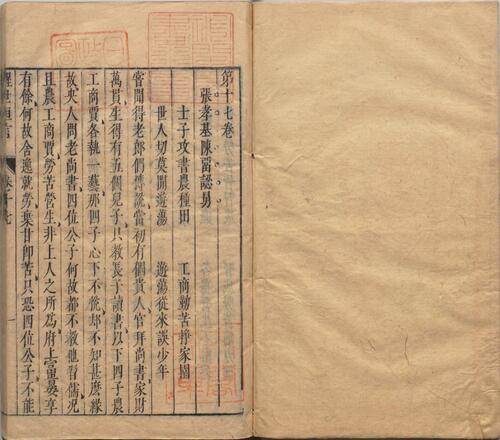 第十七卷
張孝基陳留認舅
士子攻書農種田　工商勤苦挣家園
世人切莫閒遊蕩　遊蕩從來誤少年
嘗聞得老郎們傳說當初有個貴人官拜尚書家財
萬貫生得有五個兒子只教長子讀書以下四子農
工商賈各執一藝那四子心下不悅却不知甚麽緣
故央人問老尚書四位公子何故都不教他習儒况
且農工商賈勞苦營生非上人之所為府上富貴安享
有餘何故舍逸就勞棄甘卽苦只恐四位公子不能
醒世恒言　卷十七　一